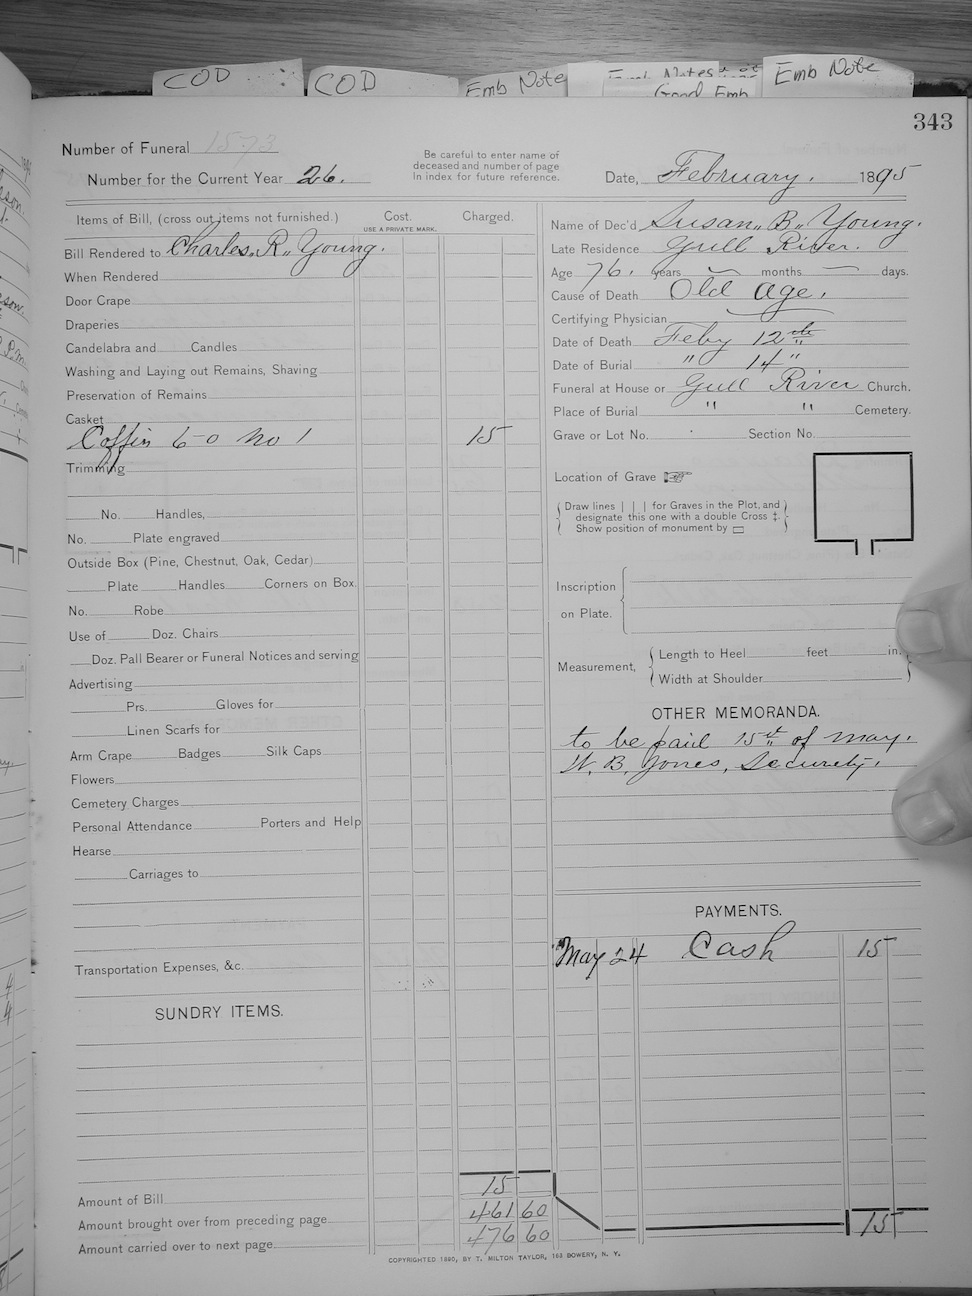 COD
COD
Emb Note
Emb Notes
Good Emb
Emb Note
343
Number of Funeral 1573
Number for the Current Year 26.
Be careful to enter name of
deceased and number of page
in index for future reference.
Date, February. 1895
Items of Bill, (cross out items not furnished.) Cost. Charged.
USE A PRIVATE MARK.
Bill Rendered to Charles. R. Young.
When Rendered
Door Crape
Draperies
Candelabra and Candles
Washing and Laying out Remains, Shaving
Preservation of Remains
Casket
Coffin 6-0 No 1 15
Trimming
No. Handles,
No. Plate engraved
Outside Box (Pine, Chestnut, Oak, Cedar)
Plate Handles Corners on Box.
No. Robe
Use of Doz. Chairs
Doz. Pall Bearer or Funeral Notices and serving
Advertising
Prs. Gloves for
Linen Scarfs for
Arm Crape Badges Silk Caps
Flowers
Cemetery Charges
Personal Attendance Porters and Help
Hearse
Carriages to
Transportation Expenses, &c.
SUNDRY ITEMS.
Amount of Bill 15
Amount brought over from preceding page 461 60
Amount carried over to next page 476 60
Name of Dec'd Susan. B. Young.
Late Residence Gull River.
Age 76. years months days.
Cause of Death Old age.
Certifying Physician
Date of Death Feby 12th
Date of Burial " 14 "
Funeral at House or Gull River Church.
Place of Burial " " Cemetery.
Grave or Lot No. Section No.
Location of Grave
Draw lines | | | for Graves in the Plot, and
designate this one with a double Cross ‡.
Show position of monument by
Inscription
on Plate.
Measurement,
Length to Heel feet in.
Width at Shoulder
OTHER MEMORANDA.
to be paid 15th of may.
W. B. Jones, Security.
PAYMENTS.
May 24 Cash 15
15
COPYRIGHTED 1890, BY T. MILTON TAYLOR, 163 BOWERY, N. Y.